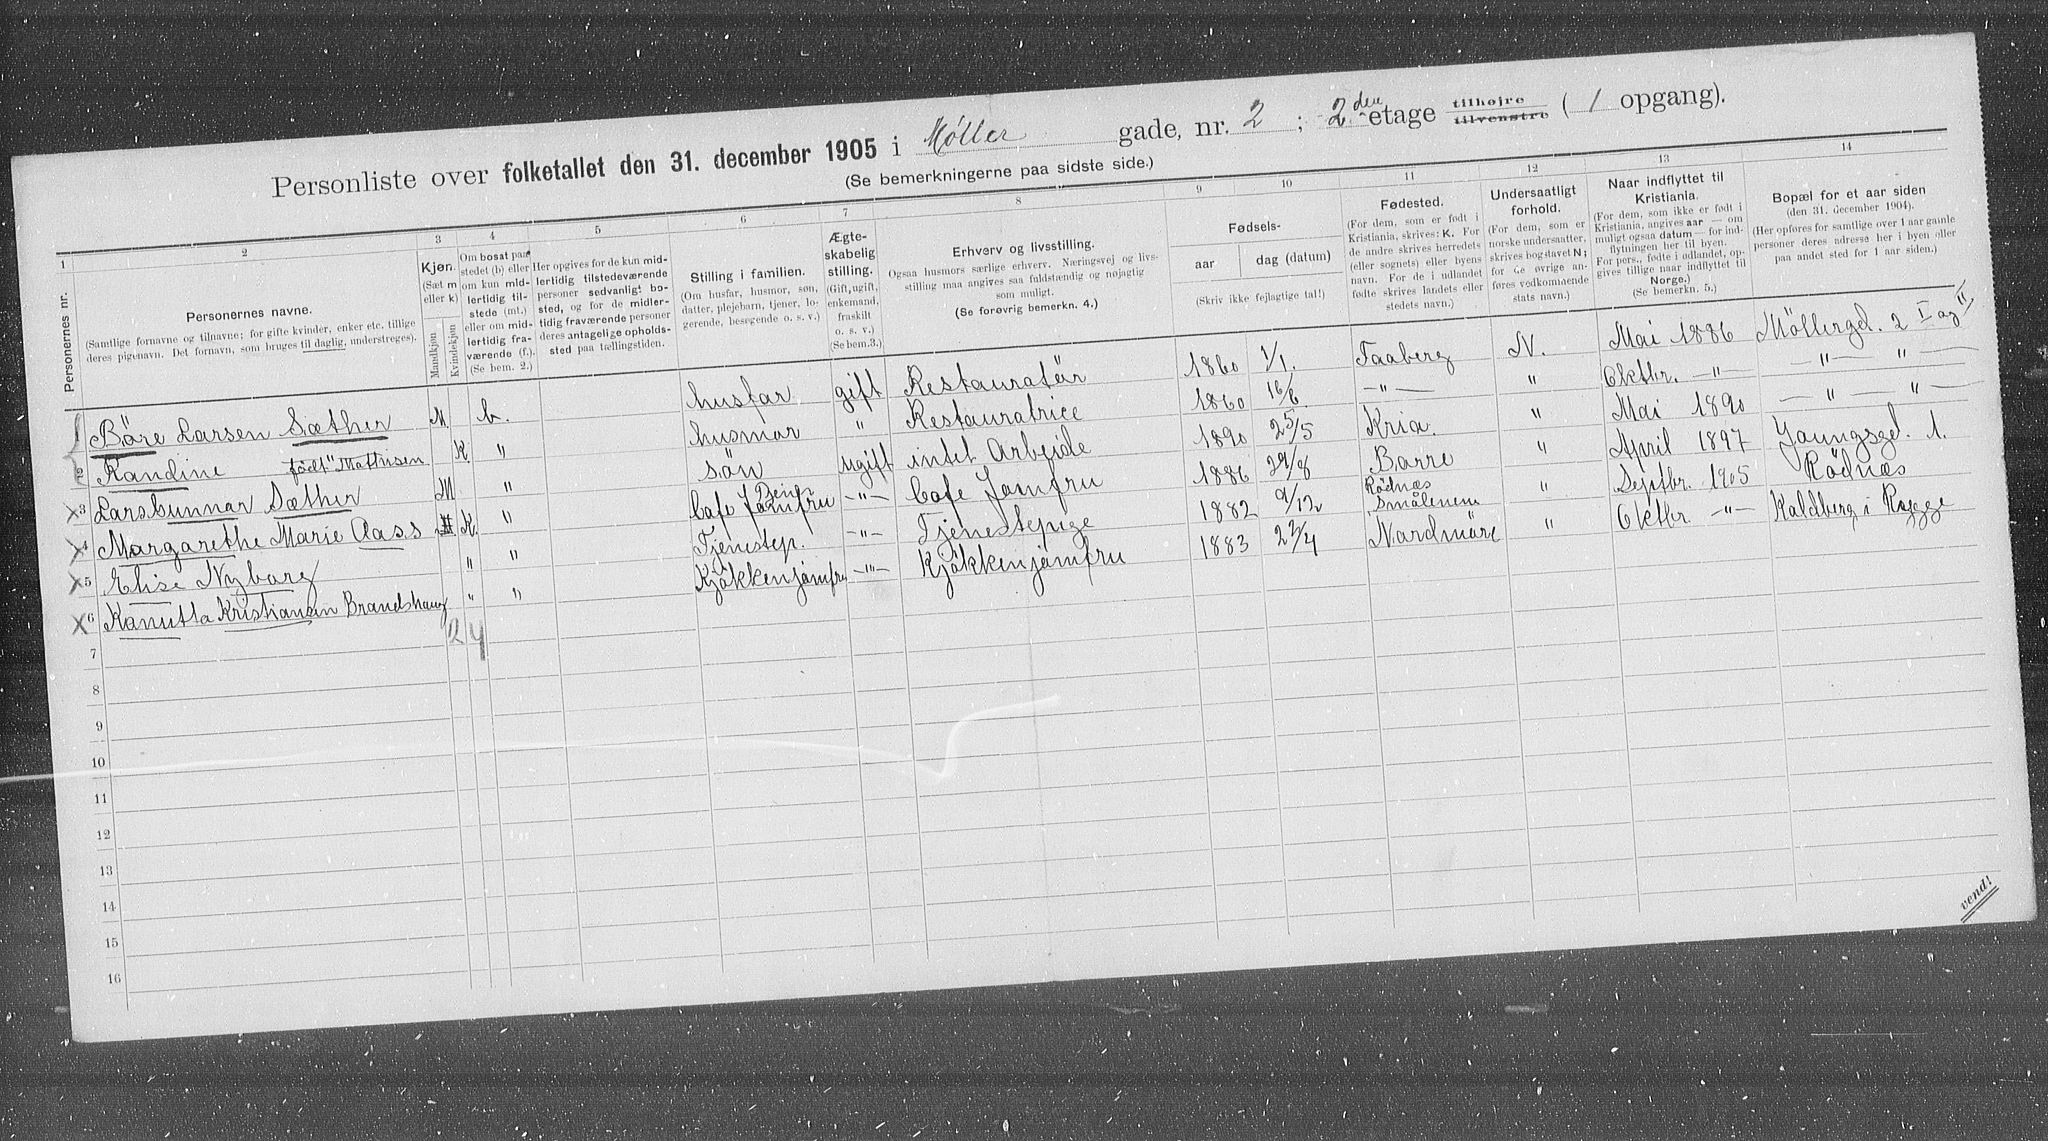 Personliste over folketallet den 31. december 1905 i Møller gade, nr. 2 ; 2 den etage tilhøjre tilvenstre ( 1 opgang).
(Se bemerkningerne paa sidste side.)
1 2 3 4 5 6 7 8 9 10 11 12 13 14
Personernes nr.
Personernes navne.
(Samtlige fornavne og tilnavne; for gifte kvinder, enker etc. tillige
deres pigenavn. Det fornavn, som bruges til daglig, understreges).
Kjøn.
(Sæt m
eller k)
Mandkjøn
Kvindekjøn
Om bosat paa
stedet (b) eller
om kun mid-
lertidig til-
stede (mt.)
eller om mid-
lertidig fra-
værende (f.).
(Se bem. 2.)
Her opgives for de kun mid-
lertidig tilstedeværende
personer sedvanligt bo-
sted, og for de midler-
tidig fraværende personer
deres antagelige opholds-
sted paa tællingstiden.
Stilling i familien.
(Om husfar, husmor, søn,
datter, plejebarn, tjener, lo-
gerende, besøgende o. s. v.)
Ægte-
skabelig
stilling.
(Gift, ugift,
enkemand,
fraskilt
o. s. v.)
(Se bem.3.)
Erhverv og livsstilling.
Ogsaa husmors særlige erhverv. Næringsvej og livs-
stilling maa angives saa fuldstændig og nøjagtig
som muligt.
(Se forøvrig bemerkn. 4.)
Fødsels-
aar dag (datum)
(Skriv ikke fejlagtige tal!)
Fødested.
(For dem, som er født i
Kristiania, skrives: K. For
de andre skrives herredets
(eller sognets) eller byens
navn. For de i udlandet
fødte skrives landets eller
stedets navn.)
Undersaatligt
forhold.
(For dem, som er
norske undersaatter,
skrives bogstavet N;
for de øvrige an-
føres vedkommende
stats navn.)
Naar indflyttet til
Kristiania.
(For dem, som ikke er født i
Kristiania, angives aar — om
muligt ogsaa datum — for ind-
flytningen her til byen.
For pers., fødte i udlandet, op-
gives tillige naar indflyttet til
Norge.)
(Se bemerkn. 5.)
Bopæl for et aar siden
(den 31. december 1904).
(Her opføres for samtlige over 1 aar gamle
personer deres adresse her i byen eller
paa andet sted for 1 aar siden.)
1 Böre Larsen Sæther M. b. husfar gift Restauratör 1860 1/1. Faaberg N. Mai 1886 Möllergd. 2 I og II
2 Randine född Mathisen K. " husmor " Restauratrice 1860 16/6 —"— " Oktbr. —"— —"— "—
3 Lars Gunnar Sæther M " sön ugift intet Arbeide 1890 25/5 Kria. " Mai 1890 —"— "—
4 Margarethe Marie Aass K. " Cafe Jomfru —"— Cafe Jomfru 1886 29/8 Borre " April 1897 Youngsgd. 1.
5 Elise Nyborg " " Tjenestep. —"— Tjenestepige 1882 9/12 Rödnæs Smålenene " Septbr. 1905 Rödnæs
6 Kanutta Kristiansen Brandshaug " " Kjökkenjömfru —"— Kjökkenjömfru 1883 22/4 Nordmöre " Oktbr. —"— Kaldberg i Rygge
2 4
7
8
9
10
11
12
13
14
15
16
vend!